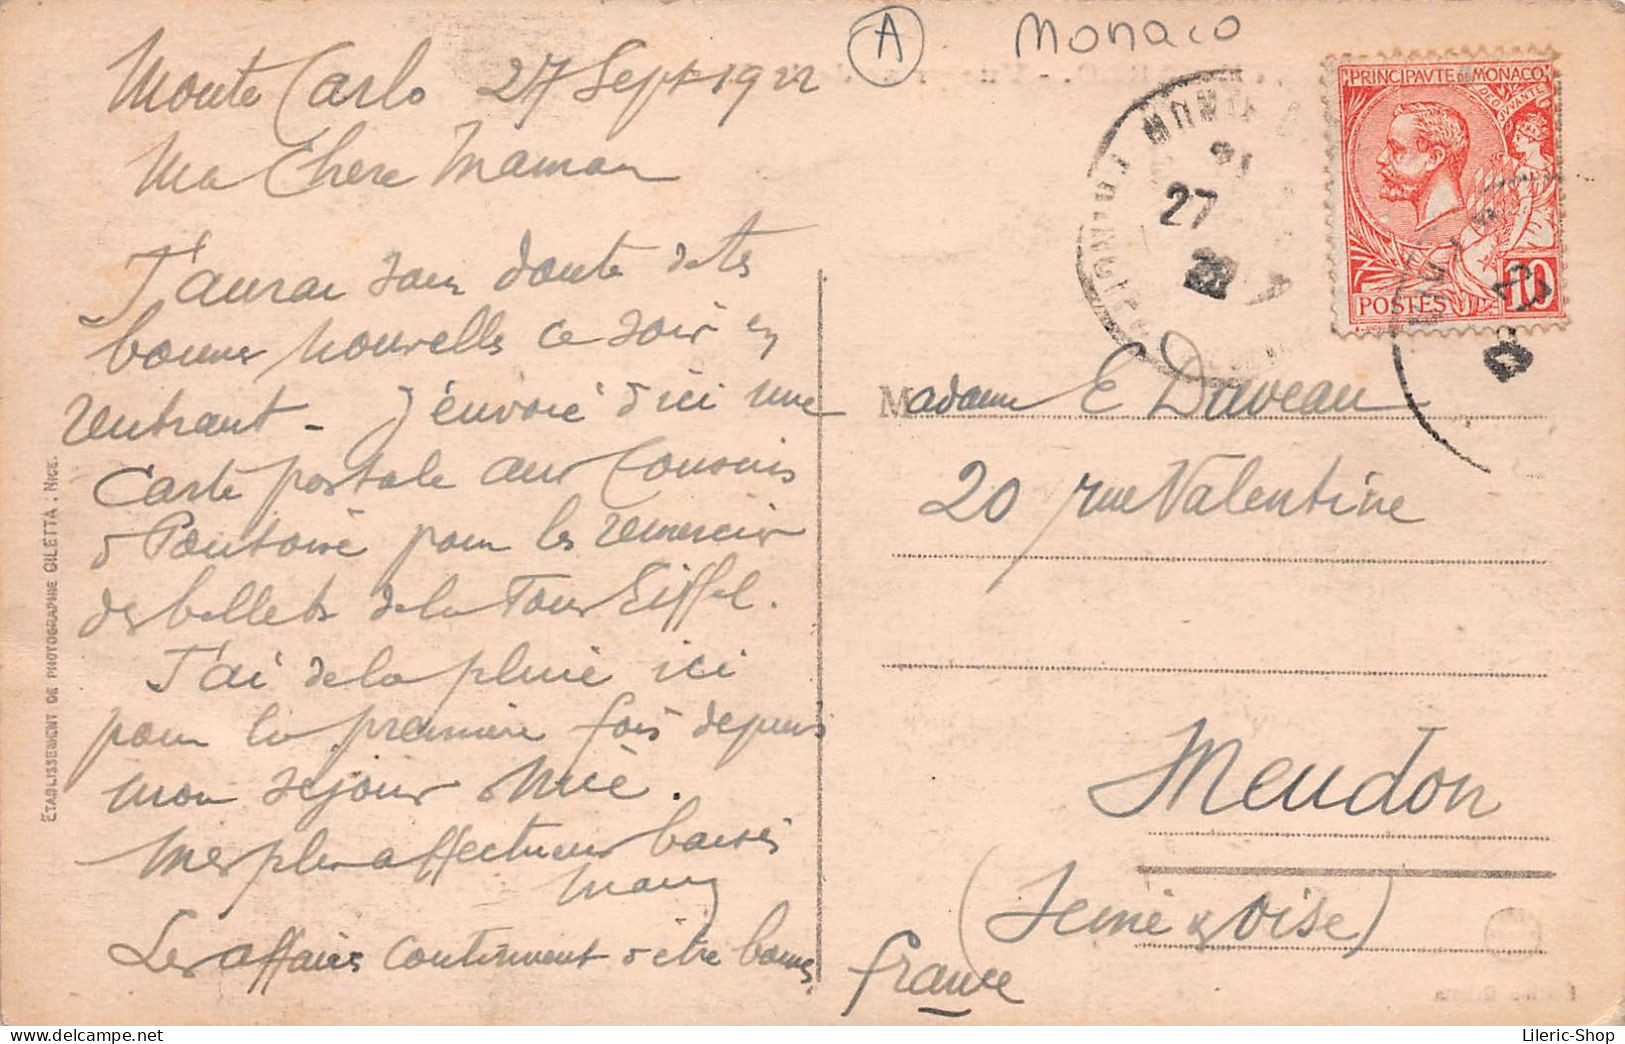 A Monaco
Monte Carlo 27 Sept 1922
Ma Chere Maman
J'aurai sans doute de tes
bonnes nouvelles ce soir en
rentrant - J'envoie d'ici une
Carte postale aux Cousins
de Pontoise pour les remercier
des billets de la Tour Eiffel.
J'ai de la pluie ici
pour la première fois depuis
mon séjour à Nice.
Mes plus affectueux baisers
Les affaires continuent à être bonnes
ETABLISSEMENT DE PHOTOGRAPHIE GILETTA, NICE.
PRINCIPAVTE DE MONACO
DEO JVVANTE
POSTES 10
27
Madame E Daveau
20 rue Valentine
Meudon
(Seine & Oise)
france
Lileric-Shop